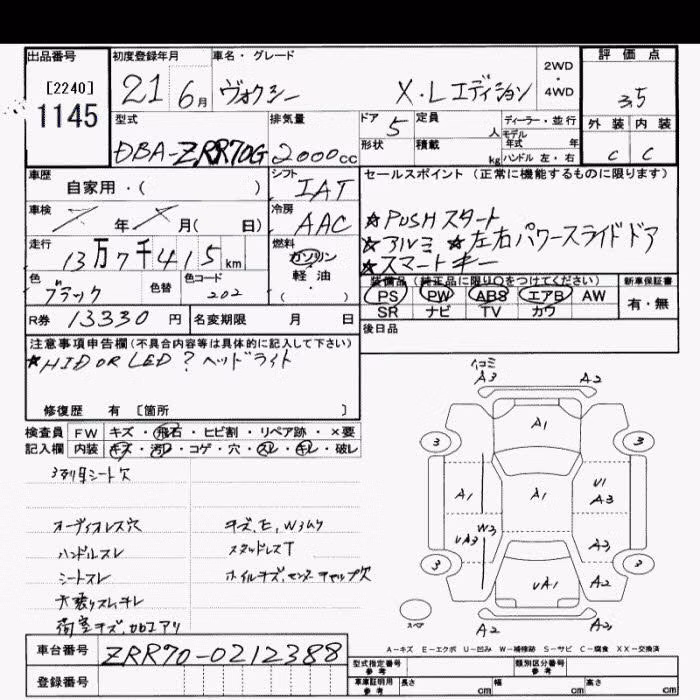 出品番号
[2240]
1145
初度登録年月
21 6月
車名・グレード
ヴォクシー X・Lエディション
2WD
・
4WD
評価点
3.5
外装 内装
C C
型式
DBA-ZRR70G
排気量
2000cc
ドア 5
形状
定員 人
積載 kg
ディーラー・並行
モデル
年式 年
ハンドル 左・右
車歴
自家用・( )
シフト
IAT
車検
年 月( 日)
冷房
AAC
走行
13万7千415km
燃料
ガソリン
軽・油
・
( )
色
ブラック
色替
色コード
202
R券 13330円
名変期限 月 日
セールスポイント(正常に機能するものに限ります)
★PUSHスタート
★アルミ ★左右パワースライドドア
★スマートキー
装備品(純正品に限り○をつけてください)
PS PW ABS エアB AW
SR ナビ TV カワ
新車保証書
有・無
後日品
注意事項申告欄(不具合内容等は具体的に記入して下さい)
★HID OR LED?ヘッドライト
修復歴 有 [箇所 ]
検査員 FW キズ・飛石・ヒビ割・リペア跡・×要
記入欄 内装 キズ・汚レ・コゲ・穴・スレ・キレ・破レ
3列目シート欠
オーディオレス穴
ハンドルスレ
シートスレ
天張りスレ,チレ
荷室キズ,加工アリ
キズ,E,W3ムラ
スタッドレスT
ホイルキズ,センターキャップ欠
イコミ
A3 A2
A1
3 3
A1 A1 U1
A3
UA3 W3 A3
3 3
UA1 A2
スペア
A2 A2
A-キズ E-エクボ U-凹み W-補修跡 S-サビ C-腐食 XX-交換済
車台番号 ZRR70-0212388
登録番号
型式指定番号
参考
類別区分番号
参考
車庫証明用
参考
長さ cm 幅 cm 高さ cm